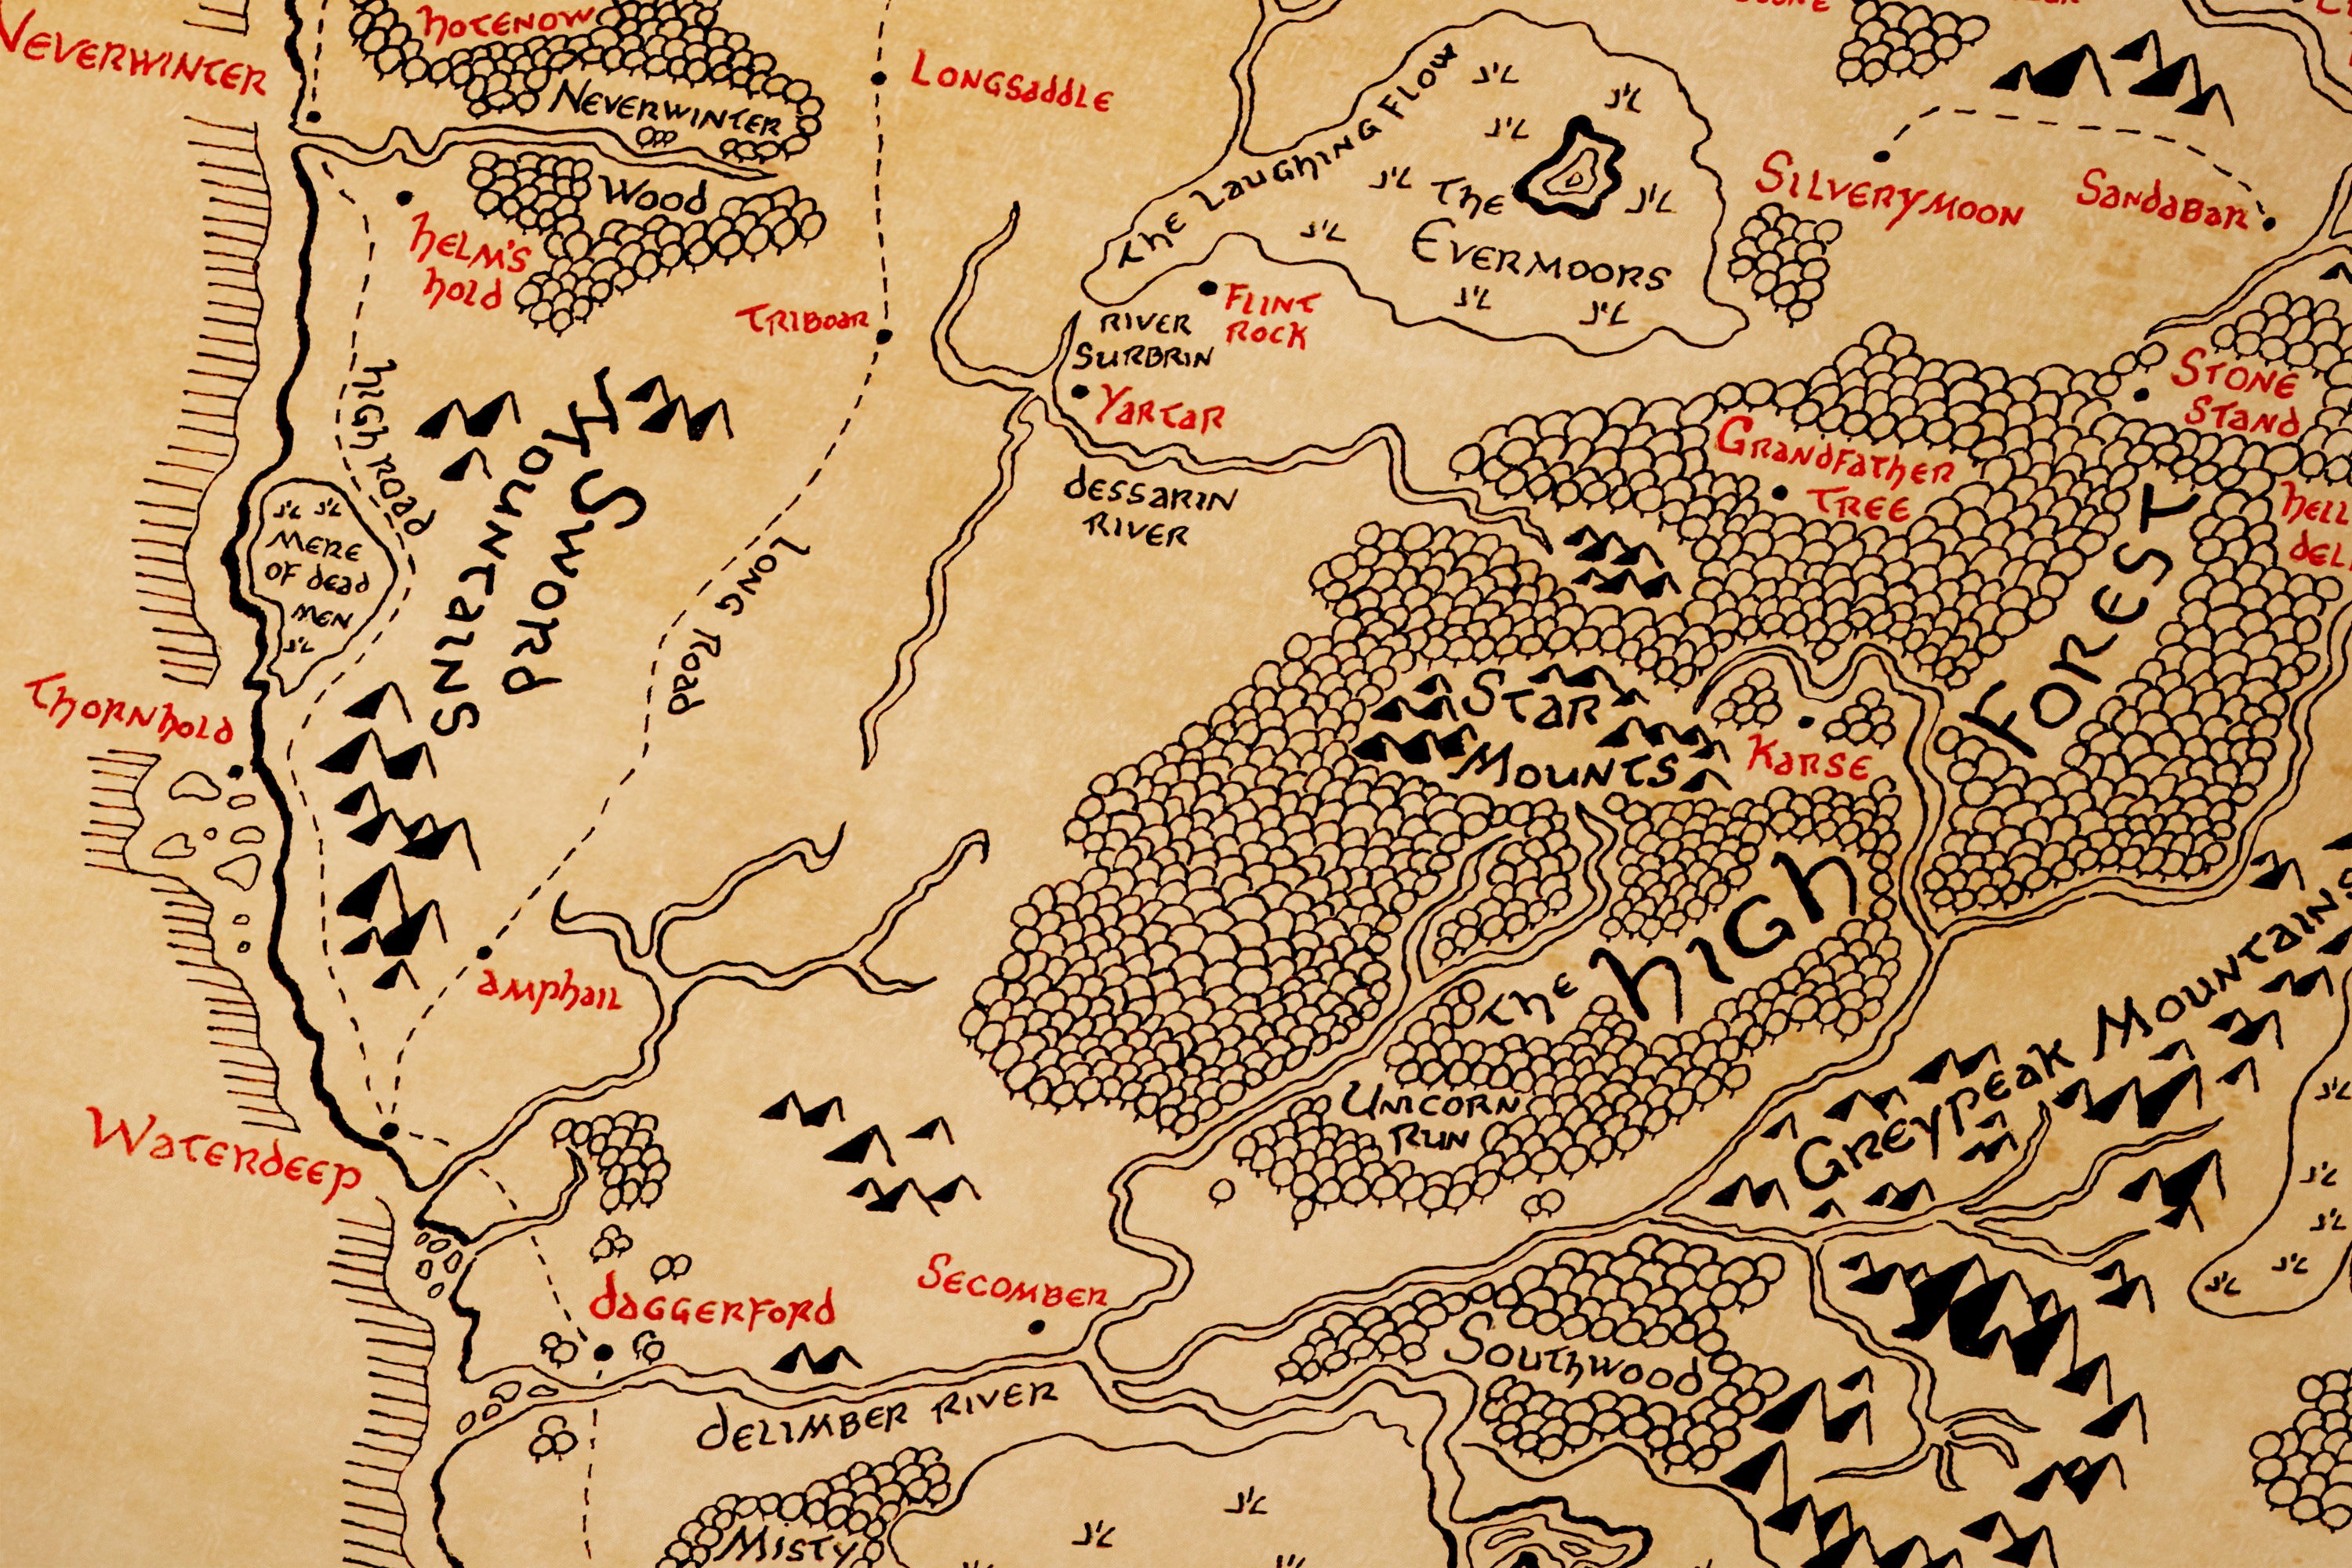 HOTENOW
NEVERWINTER
NEVERWINTER
WOOD
LONGSADDLE
THE LAUGHING FLOW
THE
EVERMOORS
SILVERYMOON
SANDABAR
HELM'S
HOLD
TRIBOAR
FLINT
ROCK
RIVER
SURBRIN
YARTAR
DESSARIN
RIVER
HIGH ROAD
SWORD
MOUNTAINS
LONG ROAD
MERE
OF DEAD
MEN
STONE
STAND
GRANDFATHER
TREE
THORNHOLD
STAR
MOUNTS
KARSE
THE HIGH
FOREST
AMPHAIL
UNICORN
RUN
GREYPEAK MOUNTAINS
WATERDEEP
DAGGERFORD
SECOMBER
SOUTHWOOD
DELIMBER RIVER
MISTY